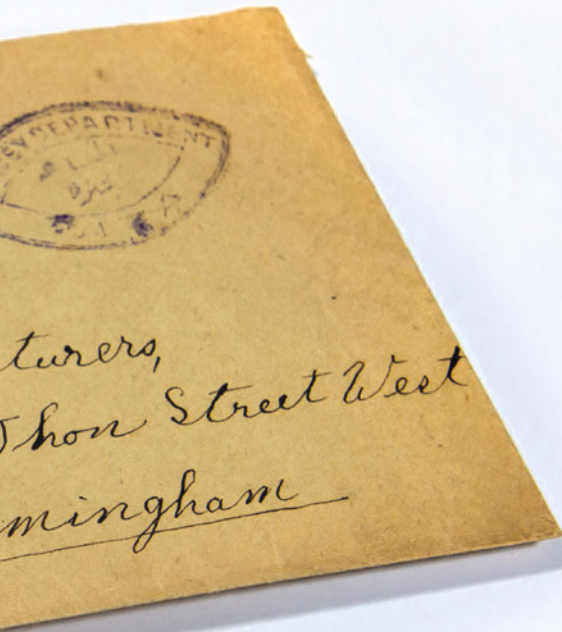 DEPARTMENT
turers,
hon Street West
mingham